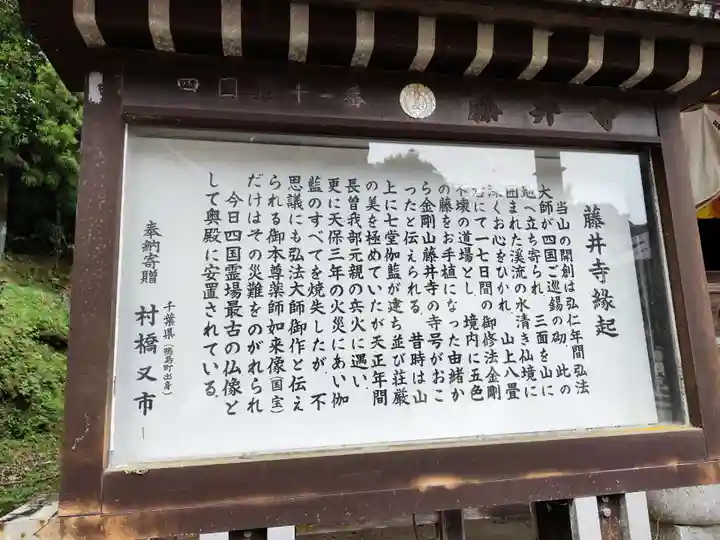 四国十一番
藤井寺
藤井寺縁起
当山の開創は弘仁年間弘法
大師が四国ご巡錫の砌 此の
へ立ち寄られ 三面を山に
囲まれた渓流の水清き仙境に
深くお心をひかれ 山上八畳
にて一七日間の御修法金剛
不壊の道場とし 境内に五色
の藤をお手植になった由緒か
ら金剛山藤井寺の寺号がおこ
ったと伝えられる。昔時は山
上に七堂伽藍が建ち並び荘厳
の美を極めていたが天正年間
長曽我部元親の兵火に遇い、
更に天保三年の火災にあい伽
藍のすべてを焼失したが 不
思議にも弘法大師御作と伝え
られる御本尊薬師如来像(国宝)
だけはその災難をのがれられ
今日四国霊場最古の仏像と
して奥殿に安置されている。
奉納寄贈 千葉県(鴨島町出身) 村橋又市